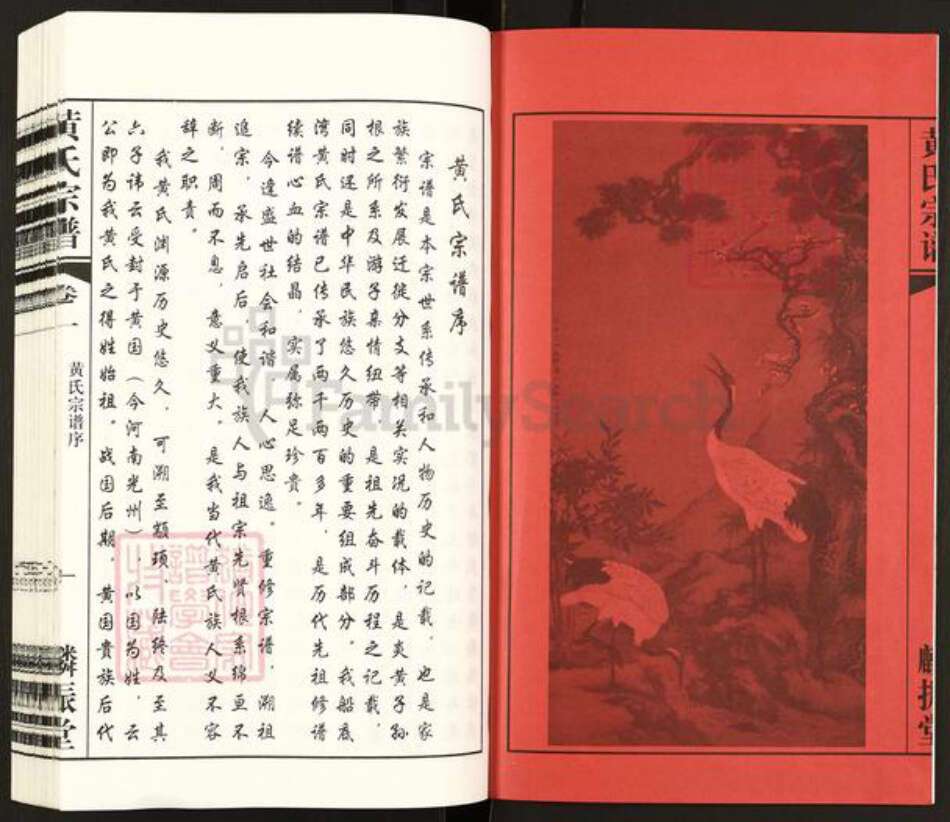 黄氏宗谱
麟振堂
黄氏宗谱序
宗谱是本宗世系传承和人物历史的记载，也是家
族繁衍发展迁徙分支等相关实况的载体，是炎黄子孙
根之所系及游子亲情纽带，是祖先奋斗历程之记载，
同时还是中华民族悠久历史的重要组成部分。我船底
湾黄氏宗谱已传承了两千两百多年，是历代先祖修谱
续谱心血的结晶，实属弥足珍贵。
今逢盛世社会和谐，人心思逸。重修宗谱，溯祖
追宗，承先启后，使我族人与祖宗先贤根系绵亘不
断，周而不息，意义重大，是我当代黄氏族人义不容
辞之职责。
我黄氏渊源历史悠久，可溯至颛顼，陆终及至其
六子讳云受封于黄国（今河南光州）以国为姓，云
公即为我黄氏之得姓始祖。战国后期，黄国贵族后代
黄氏宗谱
卷一
黄氏宗谱序
一
麟振堂
FamilySearch